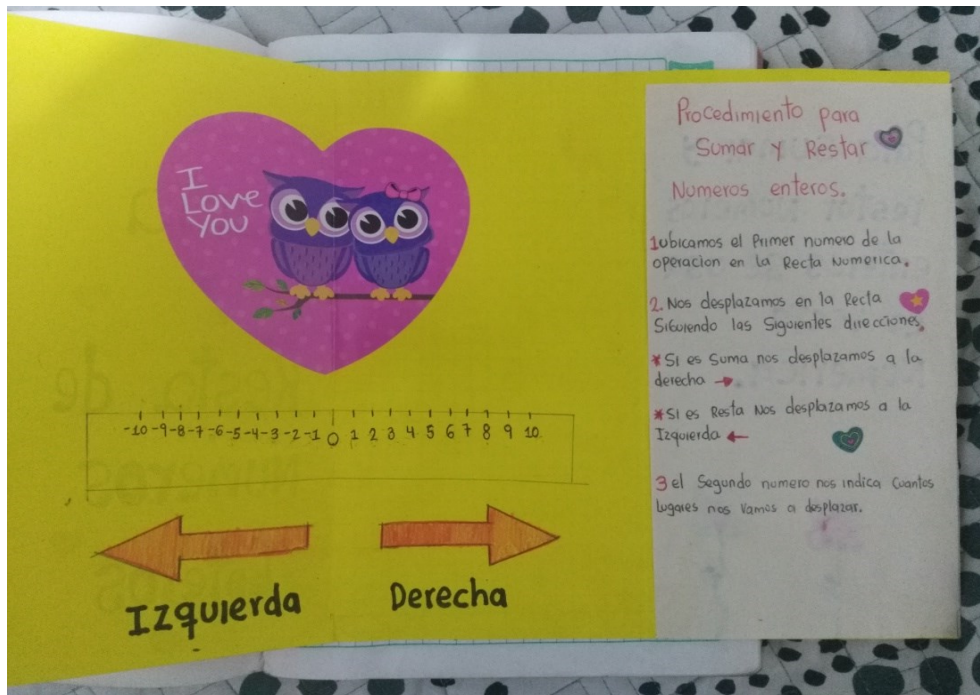 I
Love
You
-10 -9 -8 -7 -6 -5 -4 -3 -2 -1 0 1 2 3 4 5 6 7 8 9 10
Izquierda
Derecha
Procedimiento para
Sumar y Restar
Numeros enteros.
1 ubicamos el Primer numero de la
operacion en la Recta Numerica.
2. Nos desplazamos en la Recta
Siguiendo las Siguientes direcciones.
*Si es Suma nos desplazamos a la
derecha →
*Si es Resta Nos desplazamos a la
Izquierda ←
3 el Segundo numero nos indica Cuantos
lugares nos vamos a desplazar.